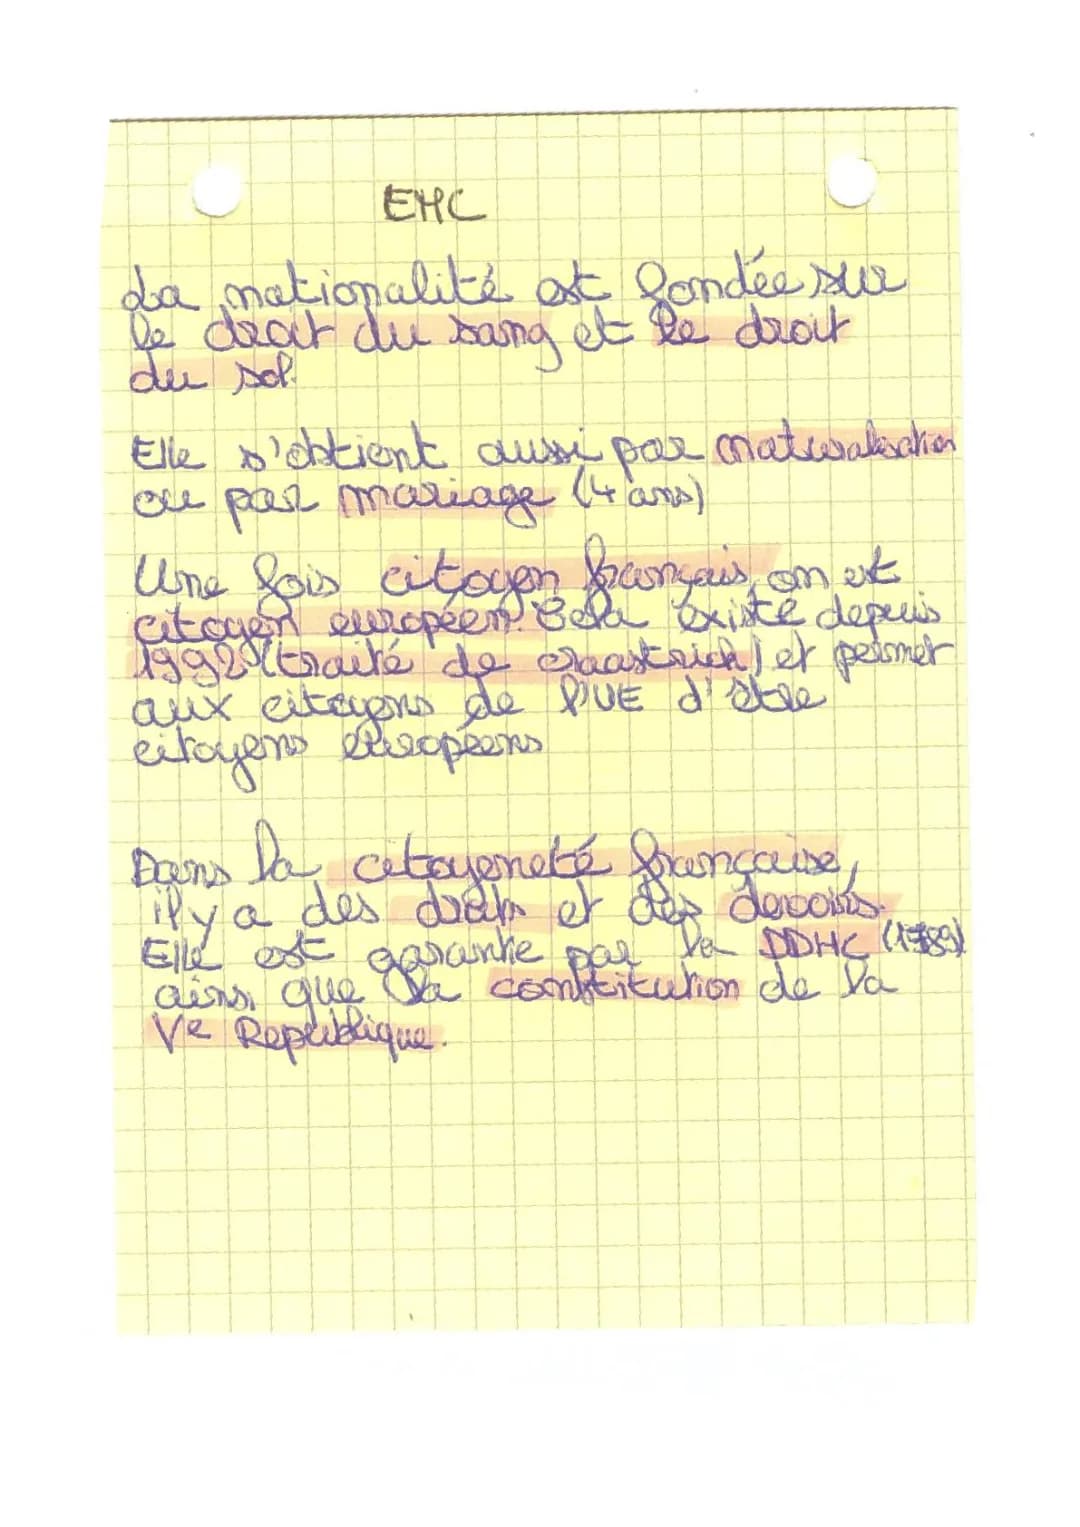 EMC
La nationalité est fondée sur
le droit du sang et le droit
du sol.
Elle s'obtient aussi par naturalisation
ou par mariage (4 ans)
Une fois citoyen français, on est
citoyen européen. Cela existe depuis
1992 (traité de maastrich) et permet
aux citoyens de l'UE d'être
citoyens européens
Dans la citoyeneté française,
il y a des droits et des devoirs.
Elle est garantie par la DDHC (1789)
ainsi que la constitution de la
Ve Republique.